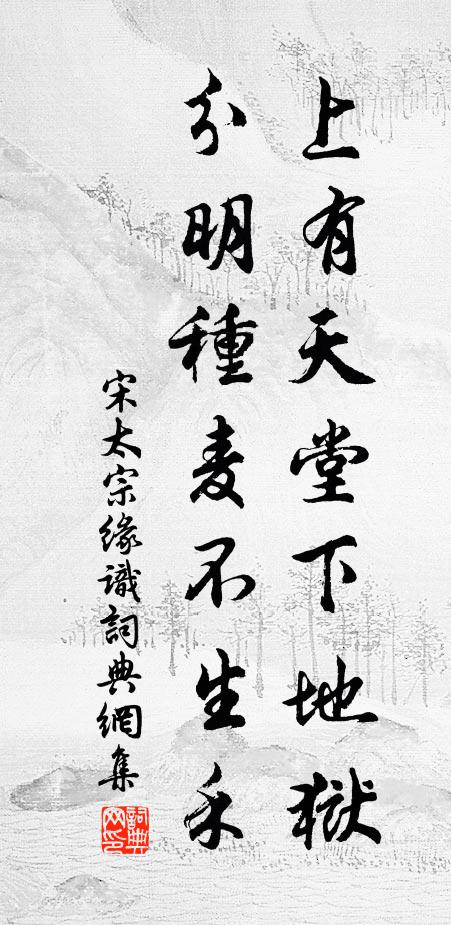 上有天堂下地獄
分明種麦不生禾
宋太宗緣識詞典網集
詞典网印